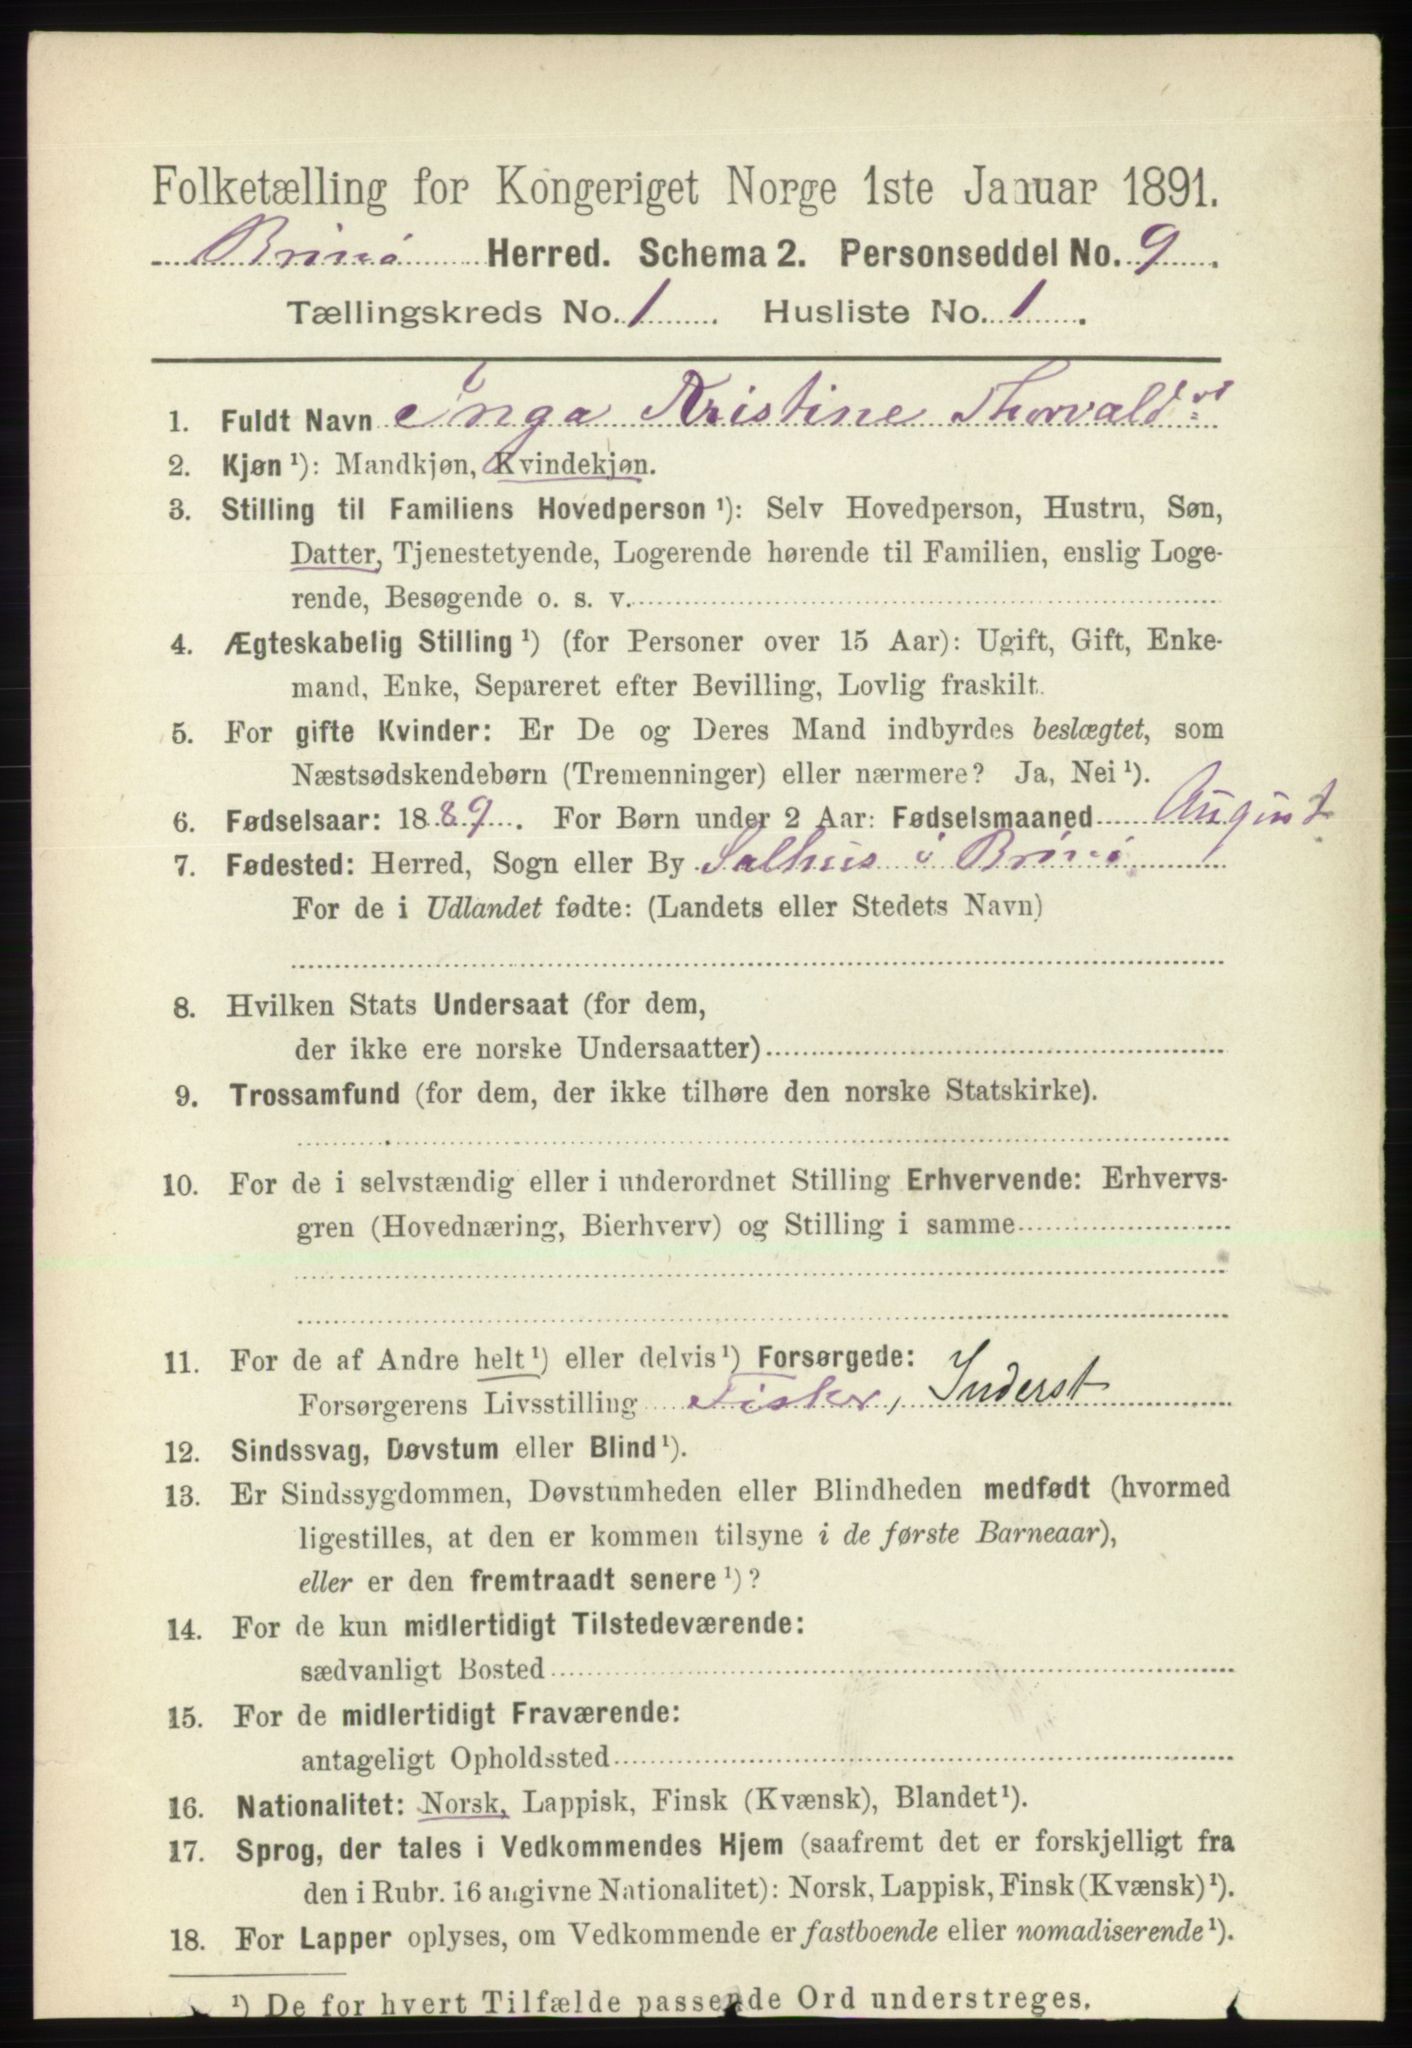 Folketælling for Kongeriget Norge 1ste Januar 1891.
Brönö Herred. Schema 2. Personseddel No. 9.
Tællingskreds No. 1. Husliste No. 1.
1. Fuldt Navn Inga Kristine Thorvaldsd
2. Kjøn ¹): Mandkjøn, Kvindekjøn.
3. Stilling til Familiens Hovedperson ¹): Selv Hovedperson, Hustru, Søn,
Datter, Tjenestetyende, Logerende hørende til Familien, enslig Loge-
rende, Besøgende o. s. v.
4. Ægteskabelig Stilling ¹) (for Personer over 15 Aar): Ugift, Gift, Enke-
mand, Enke, Separeret efter Bevilling, Lovlig fraskilt.
5. For gifte Kvinder: Er De og Deres Mand indbyrdes beslægtet, som
Næstsødskendebørn (Tremenninger) eller nærmere? Ja, Nei ¹).
6. Fødselsaar: 1889. For Børn under 2 Aar: Fødselsmaaned August
7. Fødested: Herred, Sogn eller By Salhus i Brönö
For de i Udlandet fødte: (Landets eller Stedets Navn)
8. Hvilken Stats Undersaat (for dem,
der ikke ere norske Undersaatter)
9. Trossamfund (for dem, der ikke tilhøre den norske Statskirke).
10. For de i selvstændig eller i underordnet Stilling Erhvervende: Erhvervs-
gren (Hovednæring, Bierhverv) og Stilling i samme
11. For de af Andre helt ¹) eller delvis ¹) Forsørgede:
Forsørgerens Livsstilling Fisker, Inderst
12. Sindssvag, Døvstum eller Blind ¹).
13. Er Sindssygdommen, Døvstumheden eller Blindheden medfødt (hvormed
ligestilles, at den er kommen tilsyne i de første Barneaar),
eller er den fremtraadt senere ¹)?
14. For de kun midlertidigt Tilstedeværende:
sædvanligt Bosted
15. For de midlertidigt Fraværende:
antageligt Opholdssted
16. Nationalitet: Norsk, Lappisk, Finsk (Kvænsk), Blandet ¹).
17. Sprog, der tales i Vedkommendes Hjem (saafremt det er forskjelligt fra
den i Rubr. 16 angivne Nationalitet): Norsk, Lappisk, Finsk (Kvænsk) ¹).
18. For Lapper oplyses, om Vedkommende er fastboende eller nomadiserende ¹).
¹) De for hvert Tilfælde passende Ord understreges.